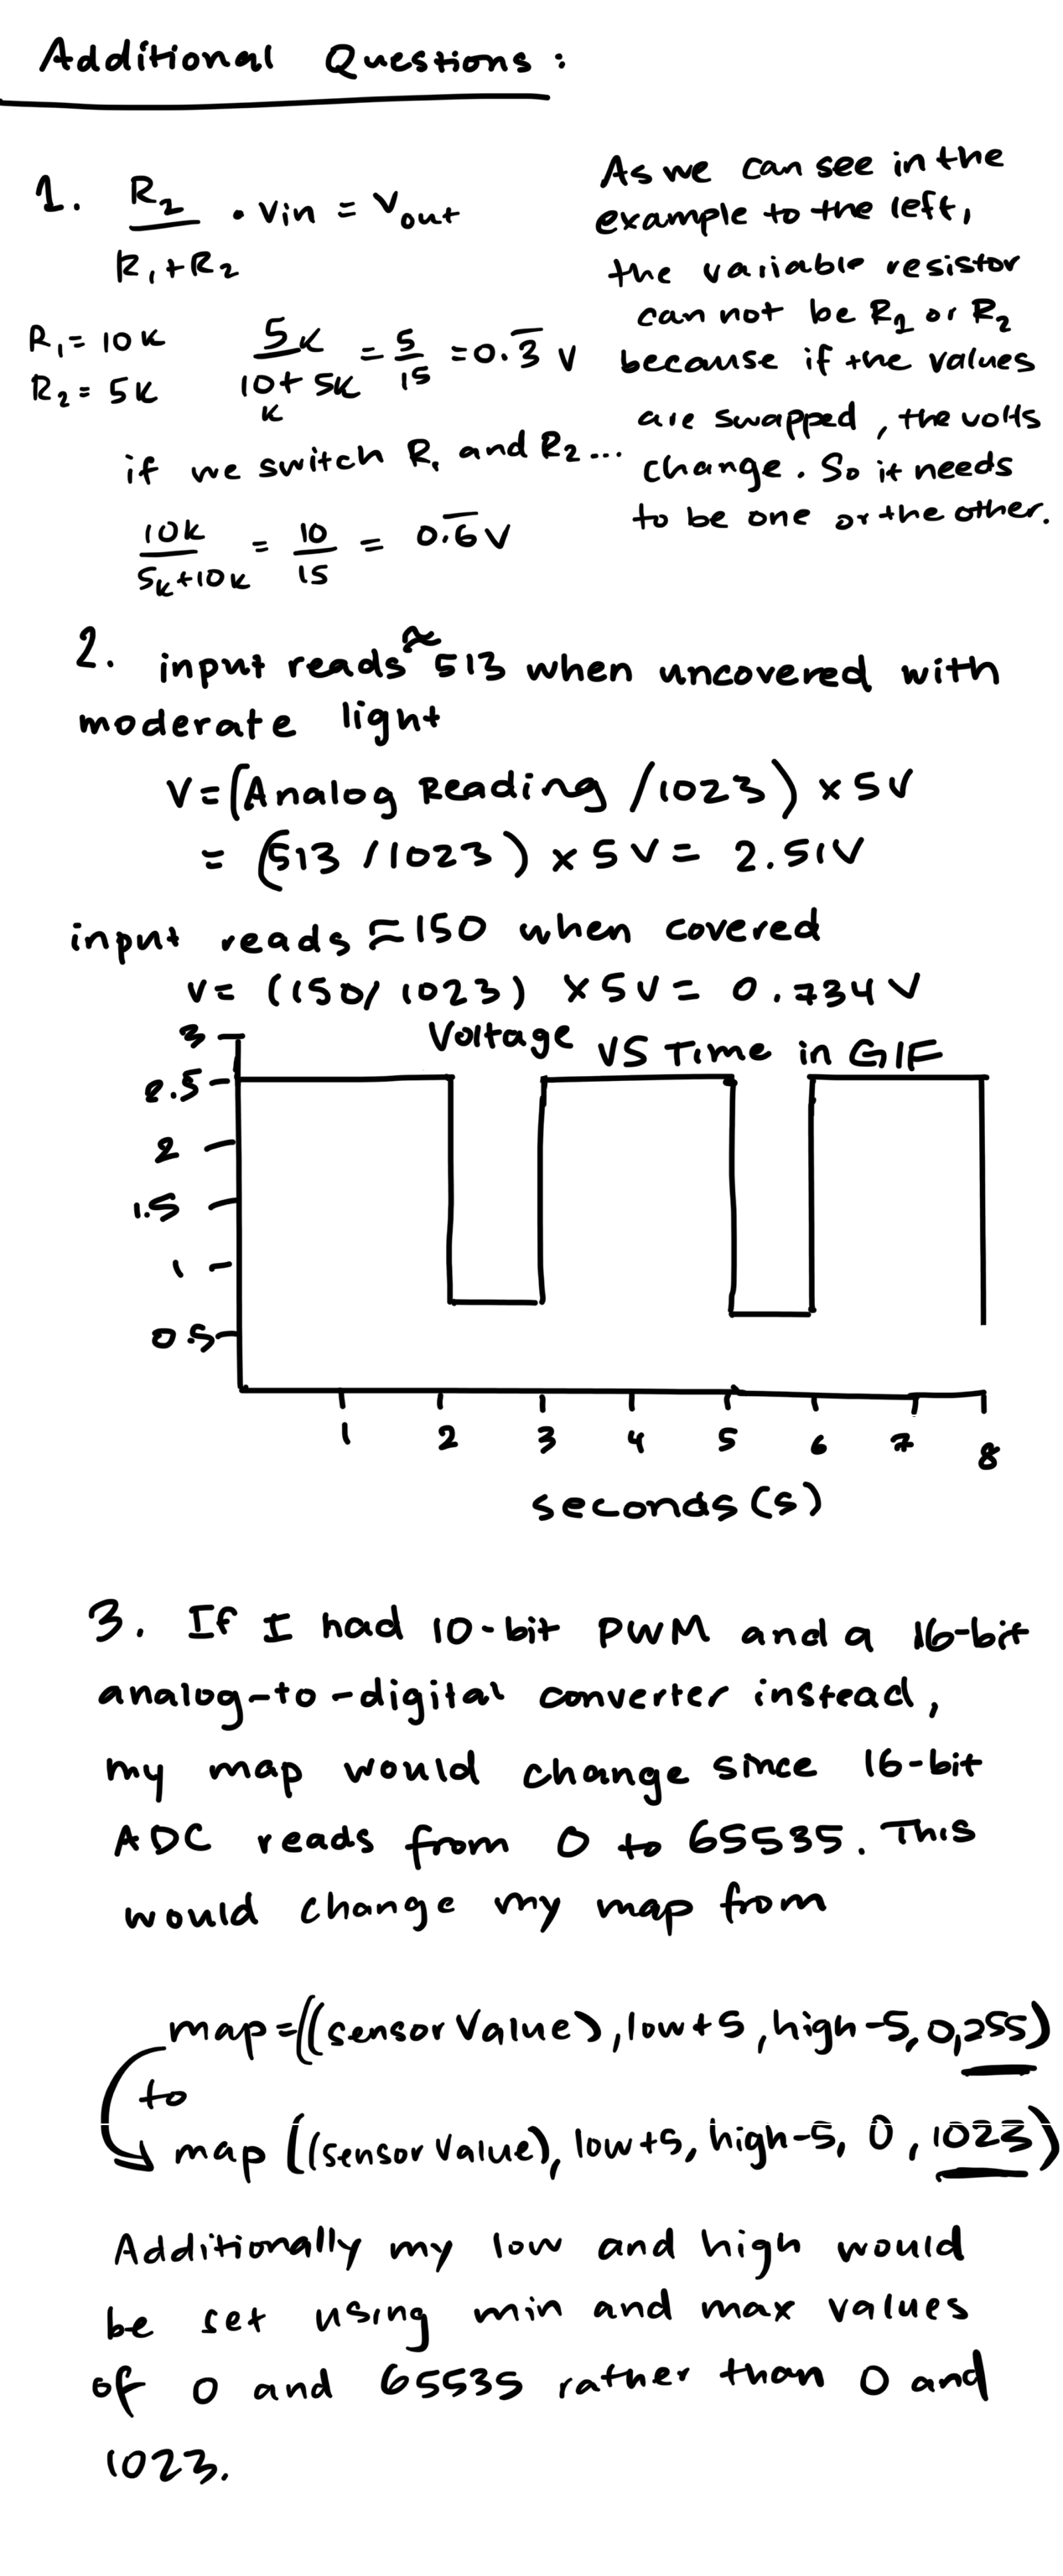 Additional Questions:
1. R₂ / R₁+R₂ · Vin = Vout
R₁ = 10K
R₂ = 5K
5K / 10K + 5K = 5/15 = 0.3̅ V
if we switch R₁ and R₂...
10K / 5K+10K = 10/15 = 0.6̅ V
As we can see in the
example to the left,
the variable resistor
can not be R₁ or R₂
because if the values
are swapped, the volts
change. So it needs
to be one or the other.
2. input reads ≈ 513 when uncovered with
moderate light
V=(Analog Reading /1023) x 5V
= (513 /1023) x 5V = 2.51V
input reads ≈150 when covered
V= (150/1023) x5V= 0.734V
Voltage VS Time in GIF
3
2.5
2
1.5
1
0.5
1 2 3 4 5 6 7 8
seconds (s)
3. If I had 10-bit PWM and a 16-bit
analog-to-digital converter instead,
my map would change since 16-bit
ADC reads from 0 to 65535. This
would change my map from
map=((sensorValue), low+5, high-5, 0, 255)
to
map ((sensorValue), low+5, high-5, 0, 1023)
Additionally my low and high would
be set using min and max values
of 0 and 65535 rather than 0 and
1023.